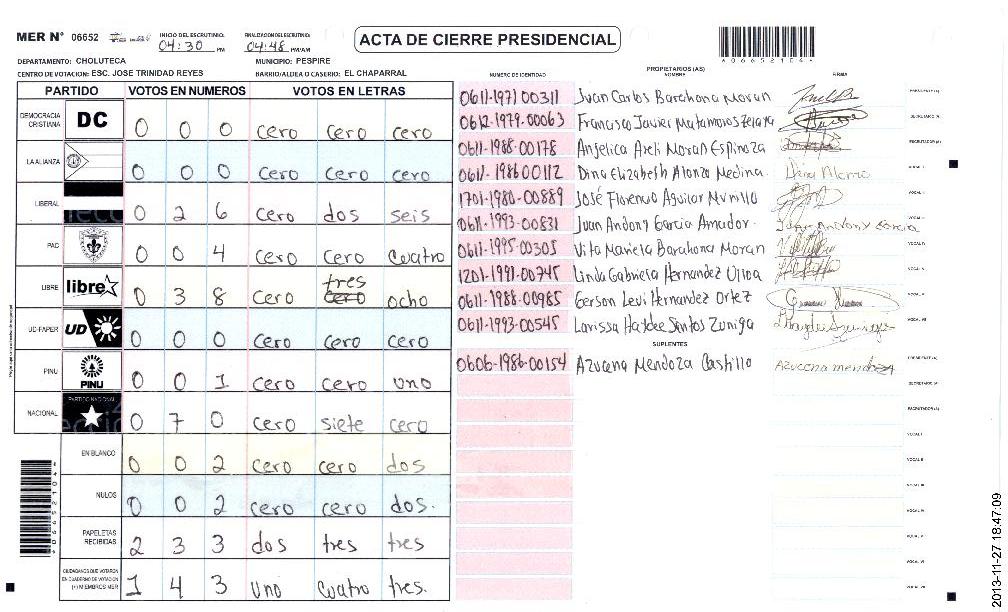 MER N° 06652
INICIO DEL ESCRUTINIO: 04:30 PM
FINALIZACION DEL ESCRUTINIO: 04:48 PM/AM
ACTA DE CIERRE PRESIDENCIAL
DEPARTAMENTO: CHOLUTECA
MUNICIPIO: PESPIRE
CENTRO DE VOTACION: ESC. JOSE TRINIDAD REYES
BARRIO/ALDEA O CASERIO: EL CHAPARRAL
PARTIDO VOTOS EN NUMEROS VOTOS EN LETRAS
DEMOCRACIA CRISTIANA DC 0 0 0 cero cero cero
LA ALIANZA 0 0 0 cero cero cero
LIBERAL 0 2 6 cero dos seis
PAC 0 0 4 cero cero cuatro
LIBRE libre 0 3 8 cero cero tres ocho
UD-FAPER UD 0 0 0 cero cero cero
PINU PINU 0 0 1 cero cero uno
NACIONAL PARTIDO NACIONAL 0 7 0 cero siete cero
EN BLANCO 0 0 2 cero cero dos
NULOS 0 0 2 cero cero dos.
PAPELETAS RECIBIDAS 2 3 3 dos tres tres
CIUDADANOS QUE VOTARON EN CUADERNO DE VOTACION (+) MIEMBROS MER 1 4 3 uno cuatro tres.
PROPIETARIOS (AS)
NUMERO DE IDENTIDAD NOMBRE FIRMA
0611-1971 00311 Juan Carlos Barahona Moran PRESIDENTE (A)
0612-1979-00063 Francisco Javier Matamoros Zelaya SECRETARIO (A)
0611-1988-00178 Angelica Areli Moran Espinoza ESCRUTADOR (A)
0611-1986 00112 Dina Elizabeth Alonzo Medina. Dina Alonzo VOCAL I
1701-1980-00889 José Florencio Aguilar Murillo VOCAL II
0611-1993-00831 Juan Andony Garcia Amador. Juan Andony Garcia
0611-1995-00305 Vita Mariela Barahona Moran
1201-1991-00745 Linda Gabriela Hernandez
0611-1988-00985 Gerson Levi Hernandez Ortez
0611-1993-00545 Larissa Haydee Santos Zuniga
SUPLENTES
0606-1986-00154 Azucena Mendoza Castillo Azucena mendoza PRESIDENTE (A)
SECRETARIO (A)
ESCRUTADOR (A)
VOCAL I
VOCAL II
2013-11-27 18:47:09